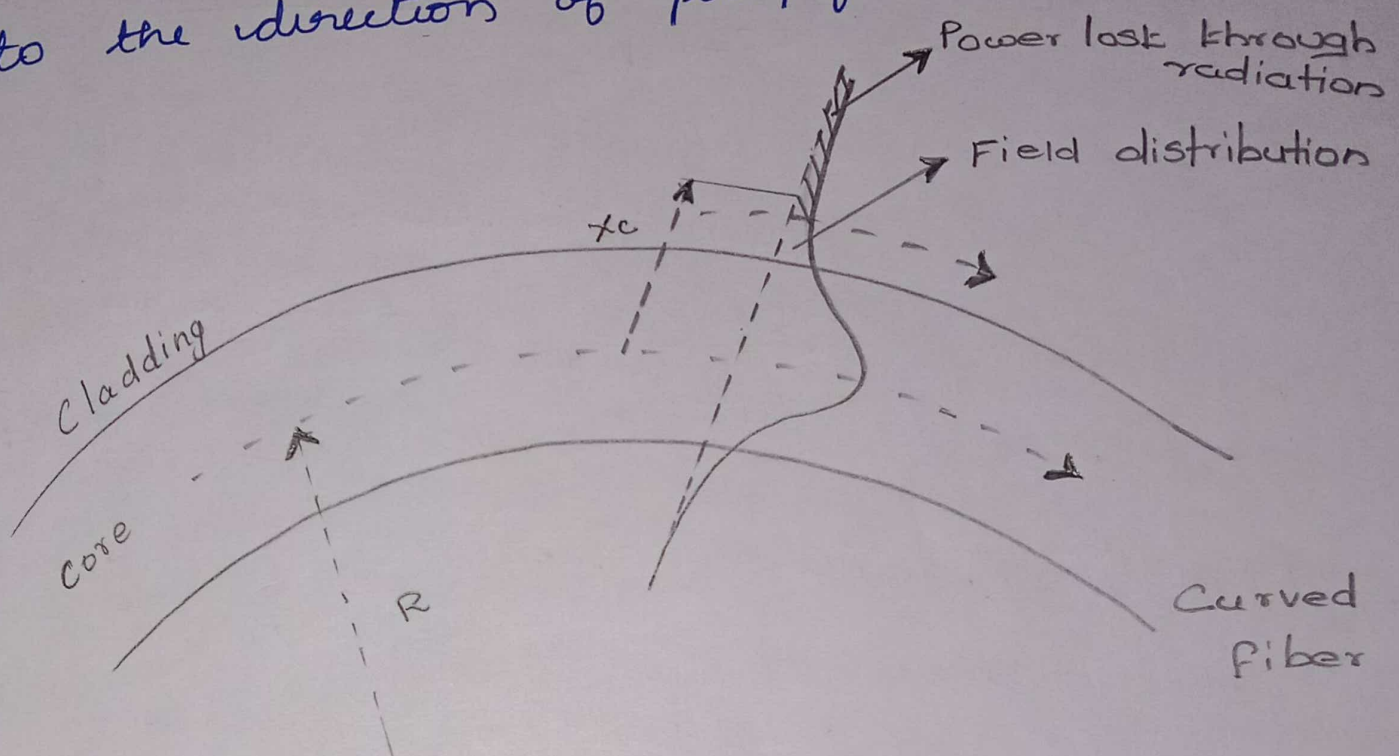 to the direction of
Power lost through
radiation
Field distribution
xc
Cladding
Core
R
Curved
fiber